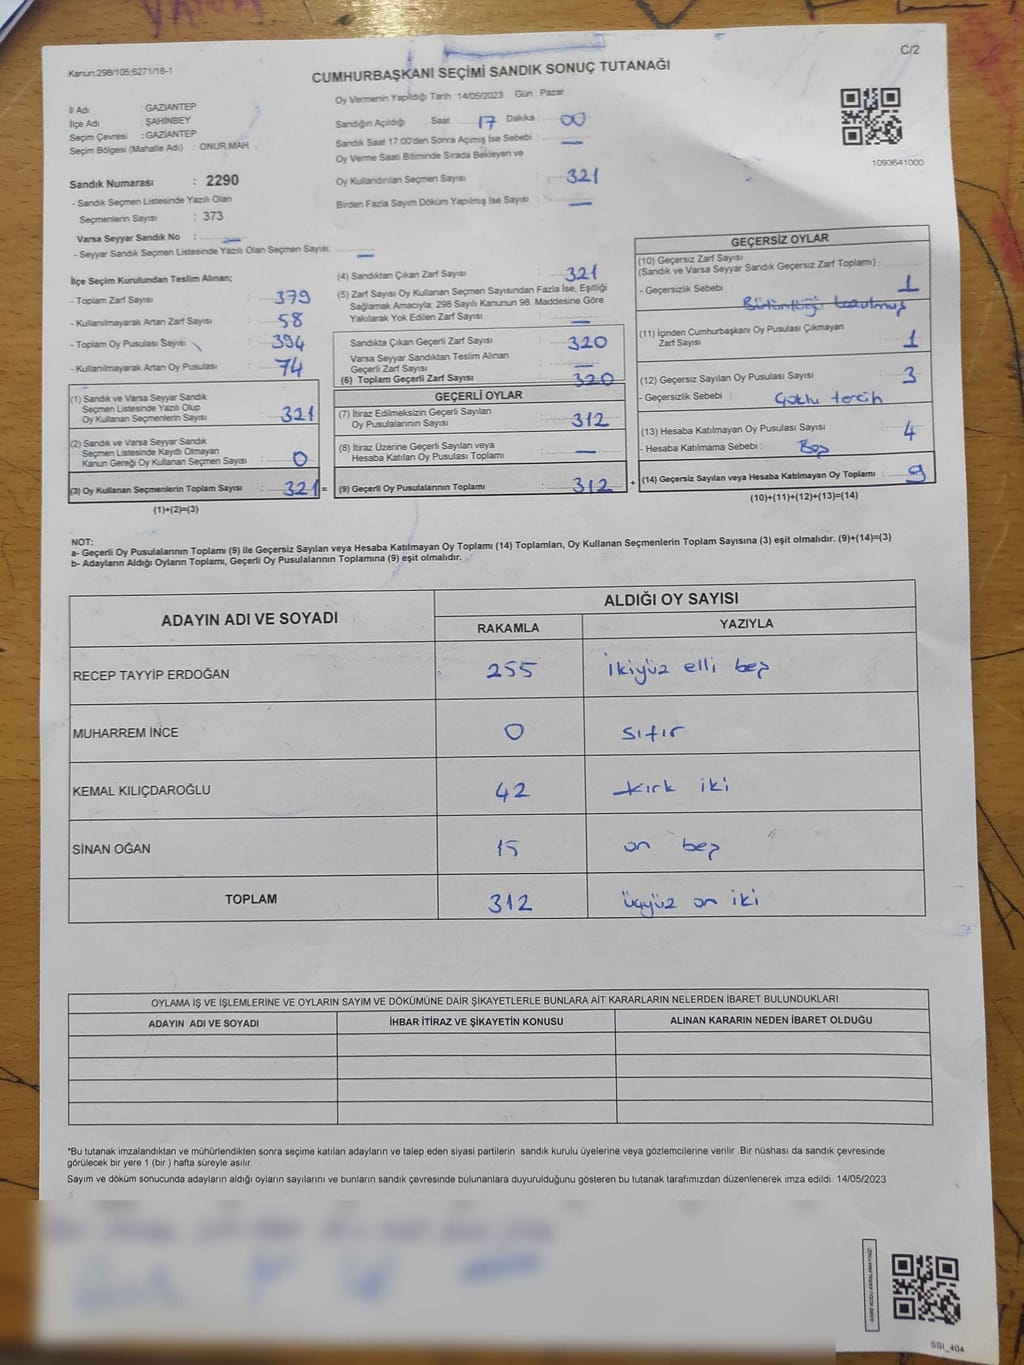 C/2
Kanun:298/105;6271/18-1
CUMHURBAŞKANI SEÇİMİ SANDIK SONUÇ TUTANAĞI
Oy Vermenin Yapıldığı Tarih :14/05/2023 Gün : Pazar
İl Adı : GAZİANTEP
İlçe Adı : ŞAHİNBEY
Seçim Çevresi : GAZİANTEP
Seçim Bölgesi (Mahalle Adı) : ONUR MAH.
Sandığın Açıldığı Saat 17 Dakika 00
Sandık Saat 17:00'den Sonra Açılmış İse Sebebi : —
Oy Verme Saati Bitiminde Sırada Bekleyen ve
Oy Kullandırılan Seçmen Sayısı : 321
Birden Fazla Sayım Döküm Yapılmış İse Sayısı : —
1093641000
Sandık Numarası : 2290
- Sandık Seçmen Listesinde Yazılı Olan
Seçmenlerin Sayısı : 373
Varsa Seyyar Sandık No : —
- Seyyar Sandık Seçmen Listesinde Yazılı Olan Seçmen Sayısı: —
İlçe Seçim Kurulundan Teslim Alınan;
- Toplam Zarf Sayısı : 379
- Kullanılmayarak Artan Zarf Sayısı : 58
- Toplam Oy Pusulası Sayısı : 394
- Kullanılmayarak Artan Oy Pusulası : 74
(1) Sandık ve Varsa Seyyar Sandık
Seçmen Listesinde Yazılı Olup
Oy Kullanan Seçmenlerin Sayısı : 321
(2) Sandık ve Varsa Seyyar Sandık
Seçmen Listesinde Kayıtlı Olmayan
Kanun Gereği Oy Kullanan Seçmen Sayısı : 0
(3) Oy Kullanan Seçmenlerin Toplam Sayısı : 321 =
(1)+(2)=(3)
(4) Sandıktan Çıkan Zarf Sayısı : 321
(5) Zarf Sayısı Oy Kullanan Seçmen Sayısından Fazla İse, Eşitliği
Sağlamak Amacıyla; 298 Sayılı Kanunun 98. Maddesine Göre
Yakılarak Yok Edilen Zarf Sayısı : —
Sandıkta Çıkan Geçerli Zarf Sayısı : 320
Varsa Seyyar Sandıktan Teslim Alınan
Geçerli Zarf Sayısı : —
(6) Toplam Geçerli Zarf Sayısı : 320
GEÇERLİ OYLAR
(7) İtiraz Edilmeksizin Geçerli Sayılan
Oy Pusulalarının Sayısı : 312
(8) İtiraz Üzerine Geçerli Sayılan veya
Hesaba Katılan Oy Pusulası Toplamı : —
(9) Geçerli Oy Pusulalarının Toplamı : 312 +
GEÇERSİZ OYLAR
(10) Geçersiz Zarf Sayısı
(Sandık ve Varsa Seyyar Sandık Geçersiz Zarf Toplamı) : 1
- Geçersizlik Sebebi : Bütünlüğü bozulmuş
(11) İçinden Cumhurbaşkanı Oy Pusulası Çıkmayan
Zarf Sayısı : 1
(12) Geçersiz Sayılan Oy Pusulası Sayısı : 3
- Geçersizlik Sebebi : Çoklu tercih
(13) Hesaba Katılmayan Oy Pusulası Sayısı : 4
- Hesaba Katılmama Sebebi : Boş
(14) Geçersiz Sayılan veya Hesaba Katılmayan Oy Toplamı : 9
(10)+(11)+(12)+(13)=(14)
NOT:
a- Geçerli Oy Pusulalarının Toplamı (9) ile Geçersiz Sayılan veya Hesaba Katılmayan Oy Toplamı (14) Toplamları, Oy Kullanan Seçmenlerin Toplam Sayısına (3) eşit olmalıdır. (9)+(14)=(3)
b- Adayların Aldığı Oyların Toplamı, Geçerli Oy Pusulalarının Toplamına (9) eşit olmalıdır.
ADAYIN ADI VE SOYADI
ALDIĞI OY SAYISI
RAKAMLA YAZIYLA
RECEP TAYYİP ERDOĞAN 255 İkiyüz elli beş
MUHARREM İNCE 0 Sıfır
KEMAL KILIÇDAROĞLU 42 kırk iki
SİNAN OĞAN 15 on beş
TOPLAM 312 üçyüz on iki
OYLAMA İŞ VE İŞLEMLERİNE VE OYLARIN SAYIM VE DÖKÜMÜNE DAİR ŞİKAYETLERLE BUNLARA AİT KARARLARIN NELERDEN İBARET BULUNDUKLARI
ADAYIN ADI VE SOYADI İHBAR İTİRAZ VE ŞİKAYETİN KONUSU ALINAN KARARIN NEDEN İBARET OLDUĞU
*Bu tutanak imzalandıktan ve mühürlendikten sonra seçime katılan adayların ve talep eden siyasi partilerin sandık kurulu üyelerine veya gözlemcilerine verilir. Bir nüshası da sandık çevresinde
görülecek bir yere 1 (bir ) hafta süreyle asılır.
Sayım ve döküm sonucunda adayların aldığı oyların sayılarını ve bunların sandık çevresinde bulunanlara duyurulduğunu gösteren bu tutanak tarafımızdan düzenlenerek imza edildi. 14/05/2023
SSI_404